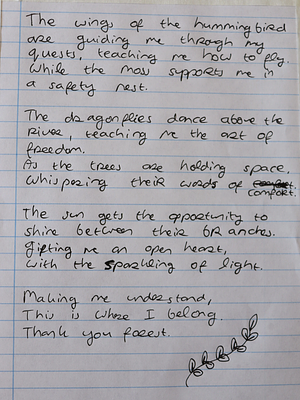 The wings of the hummingbird
are guiding me through my
quests, teaching me how to fly.
While the moss supports me in
a safety nest.
The dragonflies dance above the
river, teaching me the art of
freedom.
As the trees are holding space,
Whispering their words of
comfort.
The sun gets the opportunity to
shine between their branches.
Gifting me an open heart,
with the sparkling of light.
Making me understand,
This is where I belong.
Thank you forest.